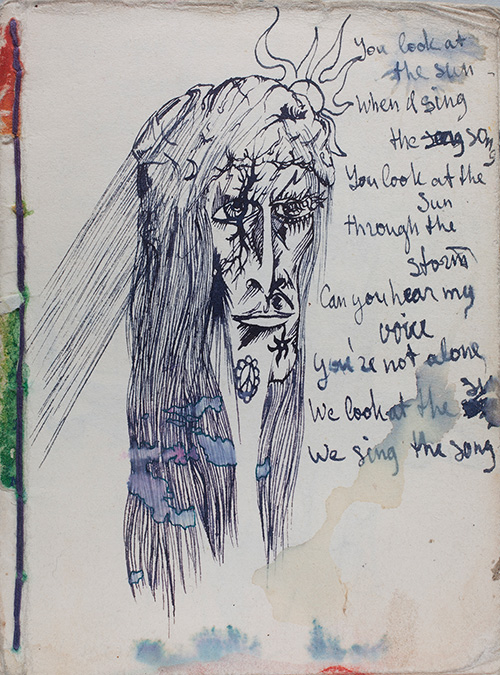 You look at
the sun
When I sing
the song
You look at the
Sun
through the
storm
Can you hear my
voice
you're not alone
We look at the
We sing the song